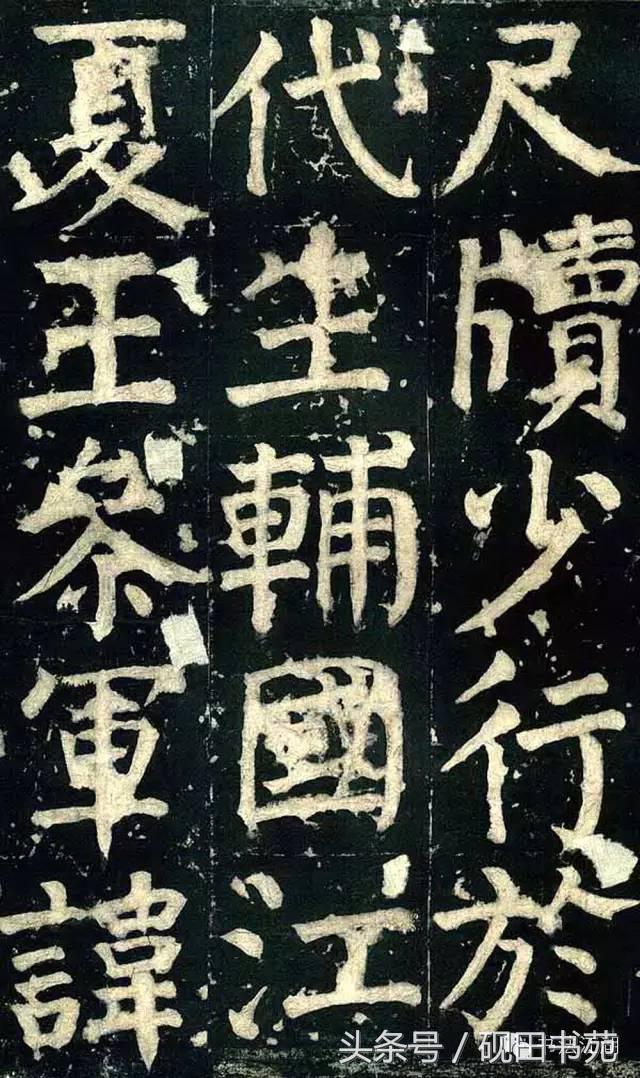 尺牘少行於
代生輔國江
夏王叅軍諱
头条号／砚田书苑